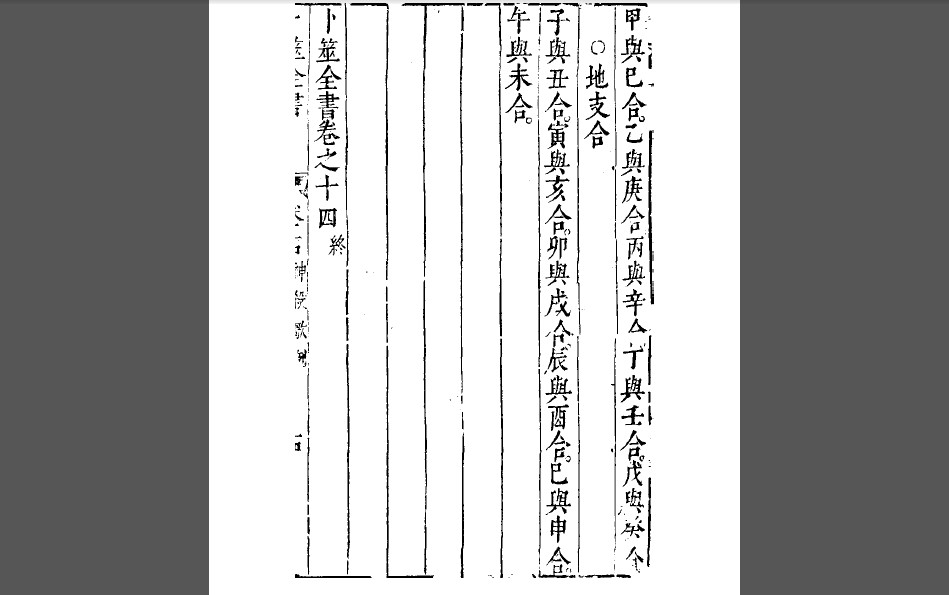 甲與巳合。乙與庚合丙與辛合。丁與壬合。戊與癸合
○地支合
子與丑合。寅與亥合。卯與戌合。辰與酉合。巳與申合。
午與未合。
卜筮全書卷之十四終